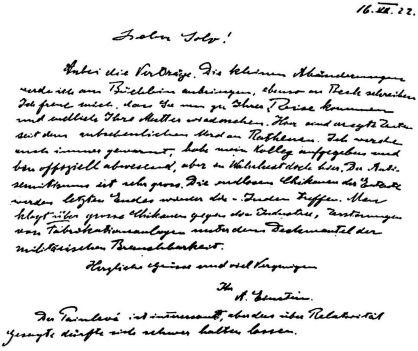 16. VII. 22.
Lieber Solo!
Anbei die Verträge. Die kleinen Abänderungen
werde ich am Büchlein anbringen, ebenso an Beck schreiben
Ich freue mich, dass Sie nun zu Ihrer Reise kommen
und endlich Ihre Mutter wiedersehen. Hier sind erregte Zeiten
seit dem entsetzlichen Mord an Rathenau. Ich werde
auch immer gewarnt, habe mein Kolleg aufgegeben und
bin offiziell abwesend, aber in Wahrheit doch hier. Der Anti-
semitismus ist sehr gross. Die endlosen Chikanen der Entente
werden letzten Endes wieder die Juden treffen. Man
klagt über grosse Chikanen gegen die Industrie, Zerstörungen
von Fabrikationsanlagen unter dem Deckmantel der
militärischen Brauchbarkeit.
Herzliche Grüsse und viel Vergnügen
Ihr
A. Einstein.
Der Painlevé ist interessant, aber das über Relativität
gesagte dürfte sich schwer halten lassen.